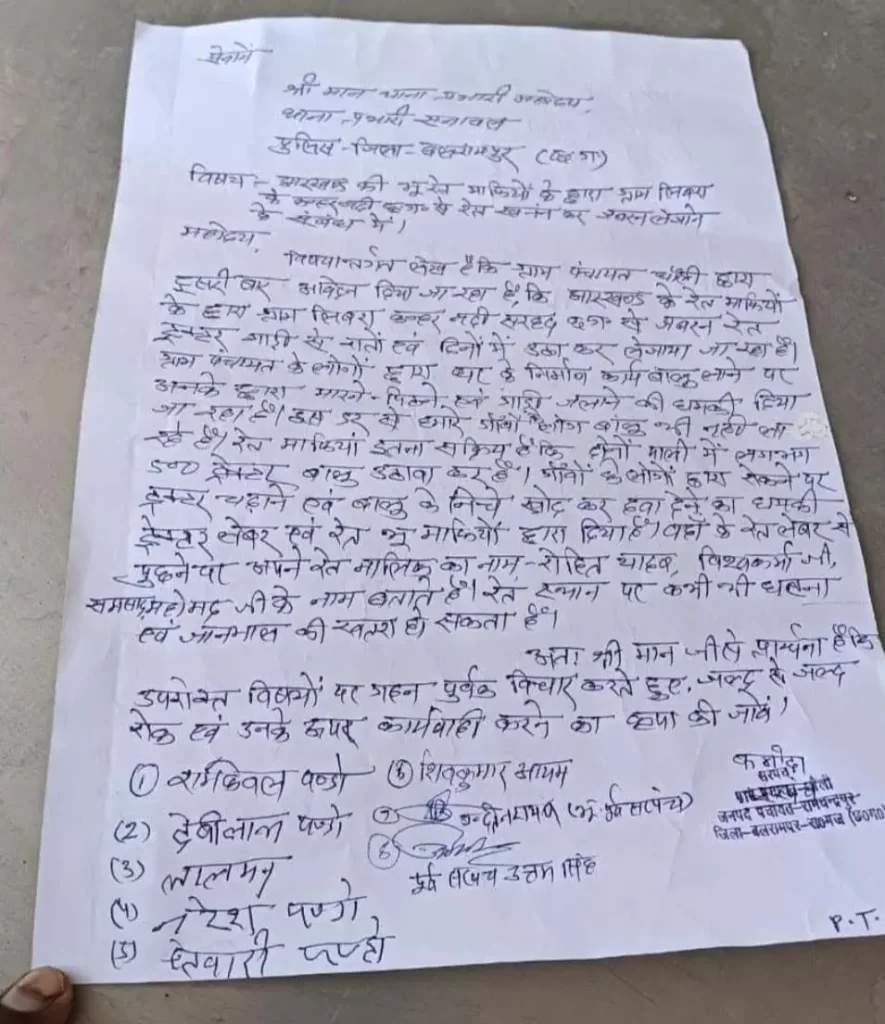 सेवामें
श्री मान थाना प्रभारी महोदय,
थाना प्रभारी सनावल
पुलिस-जिला-बलरामपुर (छ.ग)
विषय:- झारखण्ड की भू रेत माफियों के द्वारा ग्राम लिबरा
के कन्हर नदी छ०ग० से रेत खनन कर जबरन लेजाने
के संबंध में।
महोदय,
विषयान्तर्गत लेख है कि ग्राम पंचायत द्वारा
दुसरी बार आवेदन दिया जा रहा है, कि झारखण्ड के रेत माफियों
के द्वारा ग्राम लिबरा कन्हर नदी सरहद छ०ग० से जबरन रेत
ट्रेक्टर गाड़ी से रातों एवं दिनों में उठा कर लेजाया जा रहा है।
ग्राम पंचायत के लोगों द्वारा घर के निर्माण कार्य बालु लाने पर
उनके द्वारा मारने-पिटने एवं गाड़ी जलाने की धमकी दिया
जा रहा है। इस डर से हमारे गाँवों लोग बालु भी नहीं ला
रहे हैं। रेत माफियां इतना सक्रिय हैं कि दोनों पाली में लगभग
ट्रेक्टर बालु उठावा कर हैं। गाँवों के लोगों द्वारा रोकने पर
ट्रेक्टर चढ़ाने एवं बालु के निचे खोद कर दबा देने का धमकी
ट्रेक्टर लेबर एवं रेत भू माफियों द्वारा दिया है। वहाँ के रेत लेबर से
पुछने पर अपने रेत मालिक का नाम- रोहित यादव, विश्वकर्मा जी,
महोमद जी के नाम बताते हैं। रेत स्थान पर कभी भी घटना
एवं जानमाल की खतरा हो सकता है।
अतः श्री मान जी से प्रार्थना है कि
उपरोक्त विषयों पर गहन पुर्वक विचार करते हुए, जल्द से जल्द
रोक एवं उनके ऊपर कार्यवाही करने का कृपा की जावें।
① रामकेवल पण्डो ⑥ शिवकुमार आयम
(2) देवीलाल पण्डो ⑦ (भू. पूर्व सरपंच)
(3) लालमन ⑧
पूर्व सरपंच उत्तम सिंह
(4) नरेश पण्डो
(5) पण्डो
सरपंच
जनपद पंचायत-रामचन्द्रपुर
जिला-बलरामपुर-रा०गंज (छ०ग०)
P.T.